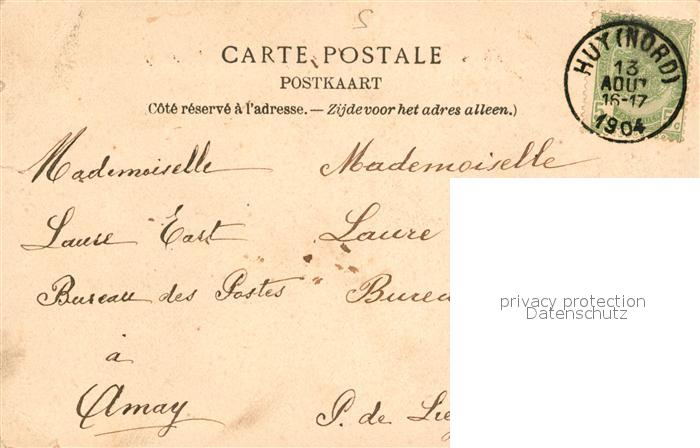 5
CARTE POSTALE
POSTKAART
(Côté réservé à l'adresse. — Zijde voor het adres alleen.)
HUY (NORD)
13
AOUT
16-17
1904
Mademoiselle
Laure East
Bureau des Postes
à
Amay
Mademoiselle
Laure
Burea
P. de Lieg
privacy protection
Datenschutz